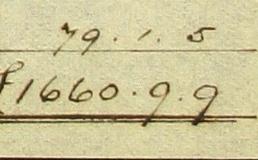 79.1.5
£1660.9.9